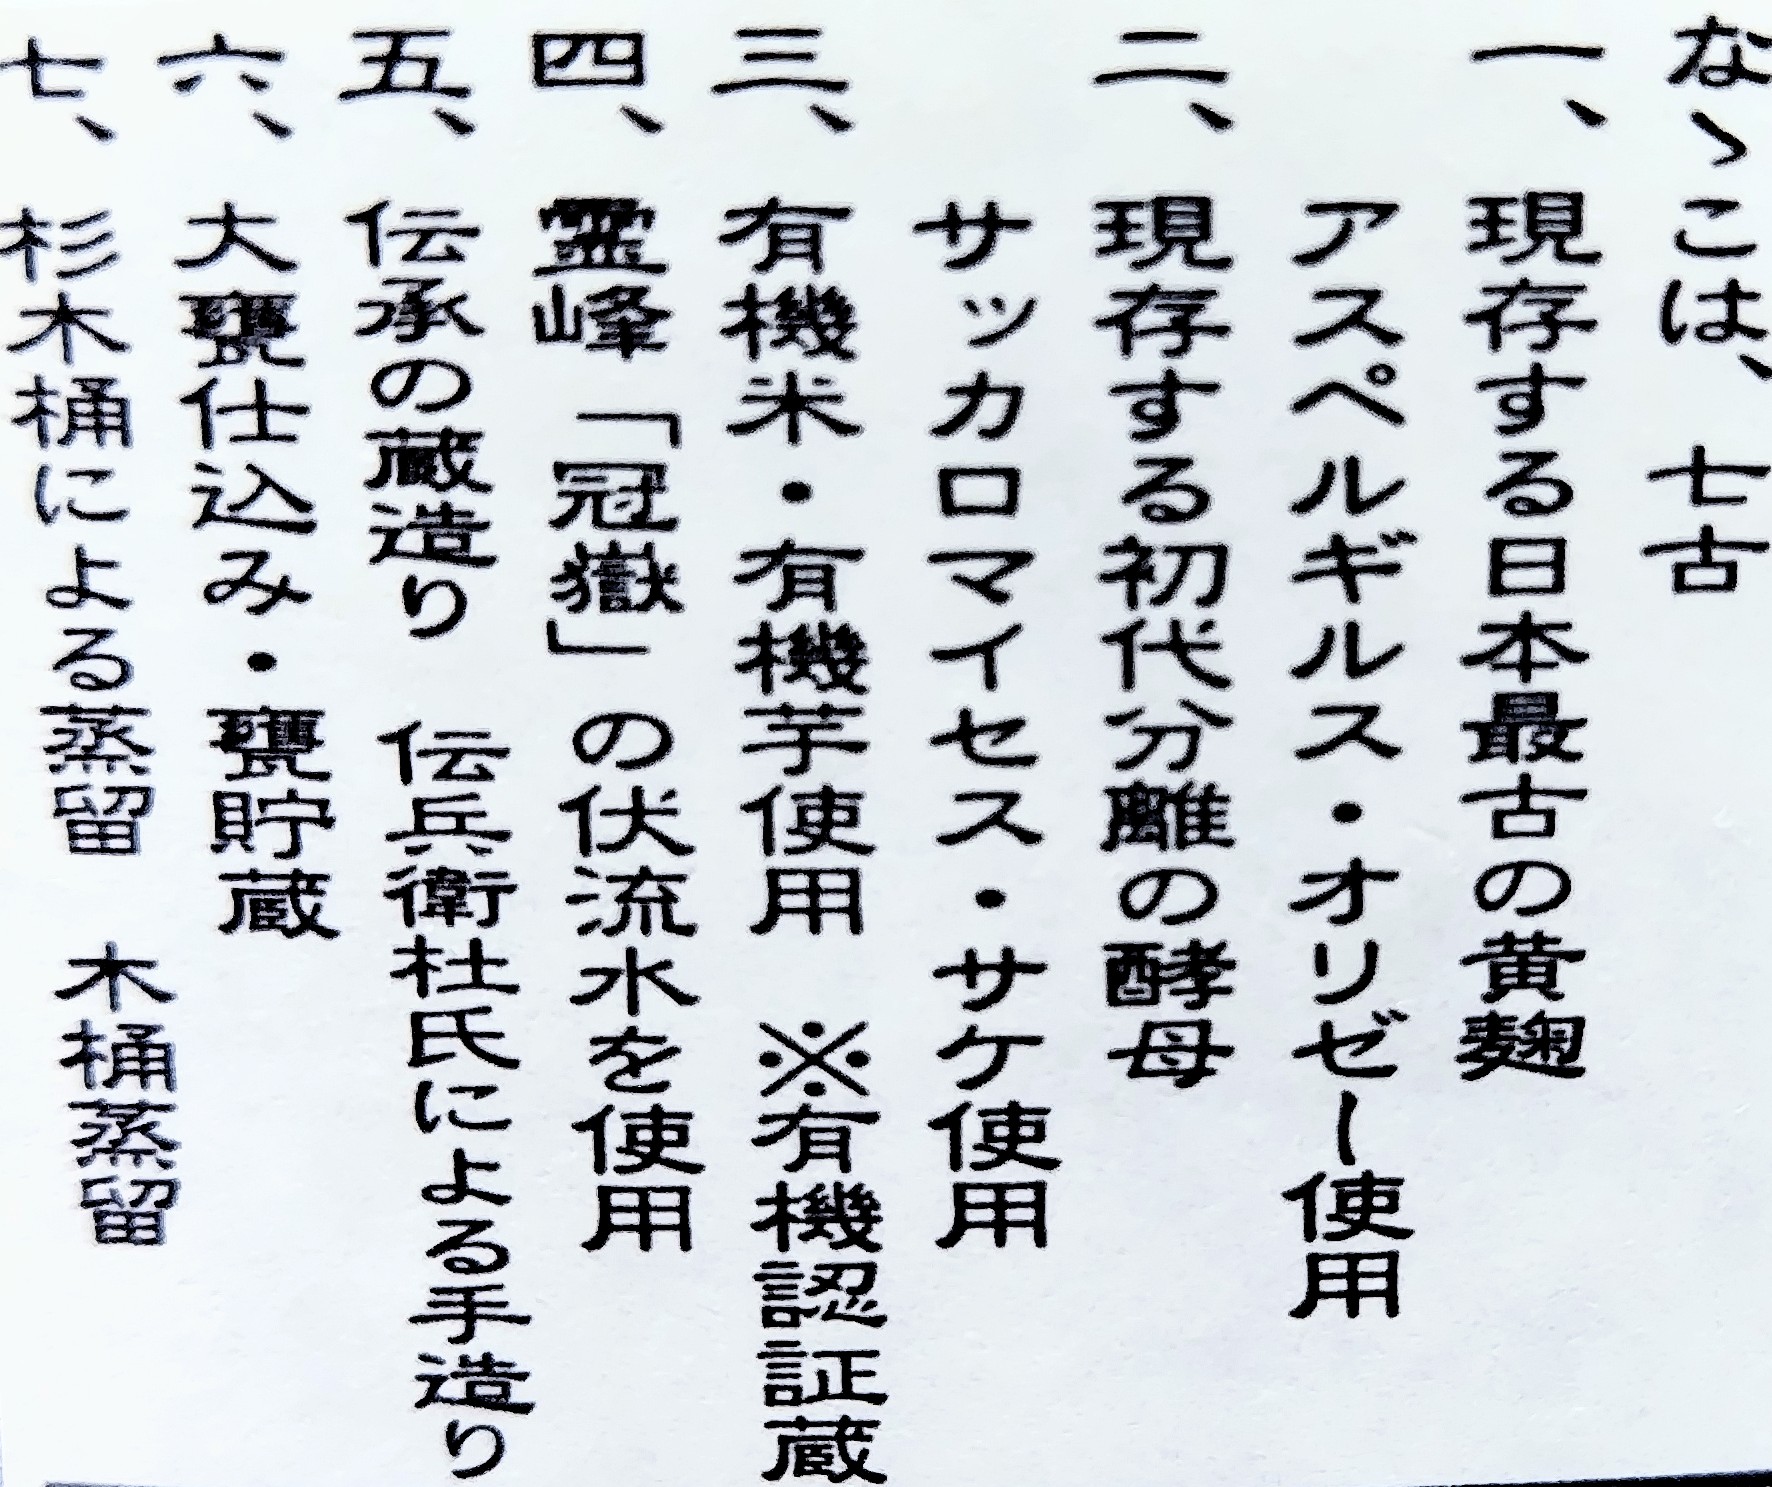 なゝこは、七古
一、現存する日本最古の黄麹
アスペルギルス・オリゼー使用
二、現存する初代分離の酵母
サッカロマイセス・サケ使用
三、有機米・有機芋使用 ※有機認証蔵
四、霊峰「冠嶽」の伏流水を使用
五、伝承の蔵造り 伝兵衛杜氏による手造り
六、大甕仕込み・甕貯蔵
七、杉木桶による蒸留 木桶蒸留